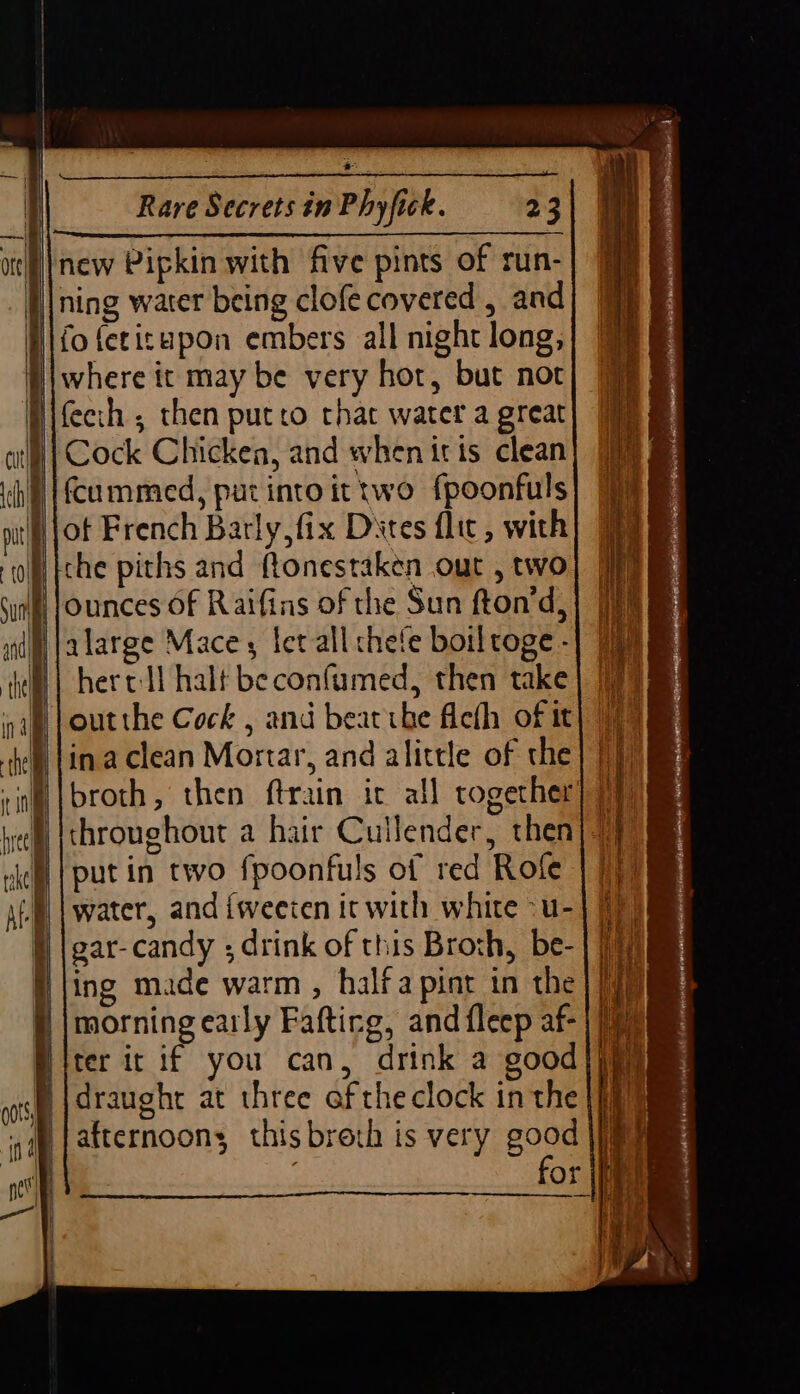 Rare Secrets in Phyſick. 23
new Pipkin with five pints of run-
ning water being cloſe covered , and
ſo ſet it upon embers all night long,
where it may be very hot, but not
ſeeth ; then put to that water a great
Cock Chicken, and when it is clean
ſcummed, put into it two ſpoonfuls
of French Barly, ſix Dates ſlit , with
the piths and ſtones taken out , two
ounces of Raiſins of the Sun ſton'd,
a large Mace ; let all theſe boil toge -
her till half be conſumed, then take
out the Cock , and beat the fleſh of it
in a clean Mortar, and a little of the
broth , then ſtrain it all together
throughout a hair Cullender, then
put in two ſpoonfuls of red Roſe
water, and ſweeten it with white ſu-
gar-candy ; drink of this Broth, be-
ing made warm , half a pint in the
morning early Faſting, and ſleep af-
ter it if you can, drink a good
draught at three of the clock in the
afternoon; this broth is very good
for